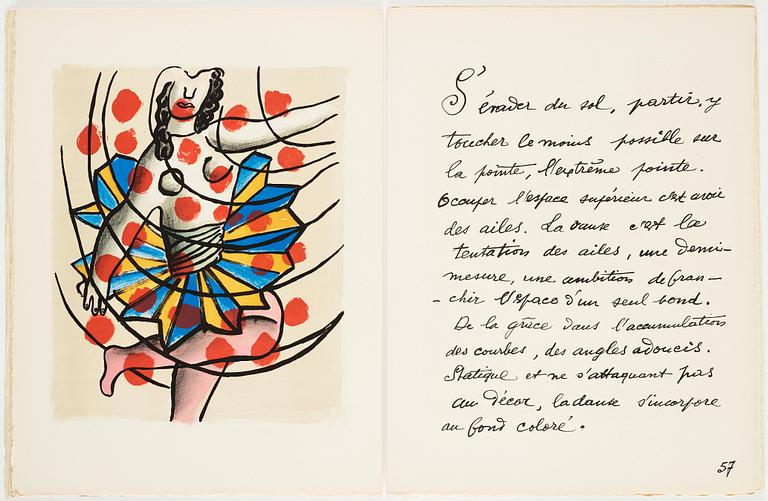 S'évader du sol, partir, y
toucher le moins possible sur
la pointe, l'extrême pointe.
Occuper l'espace supérieur c'est avoir
des ailes. La danse c'est la
tentation des ailes, une demi-
mesure, une ambition de fran-
-chir l'espace d'un seul bond.
De la grâce dans l'accumulation
des courbes, des angles adoucis.
Statique et ne s'attaquant pas
au décor, la danse s'incorpore
au fond coloré.
57